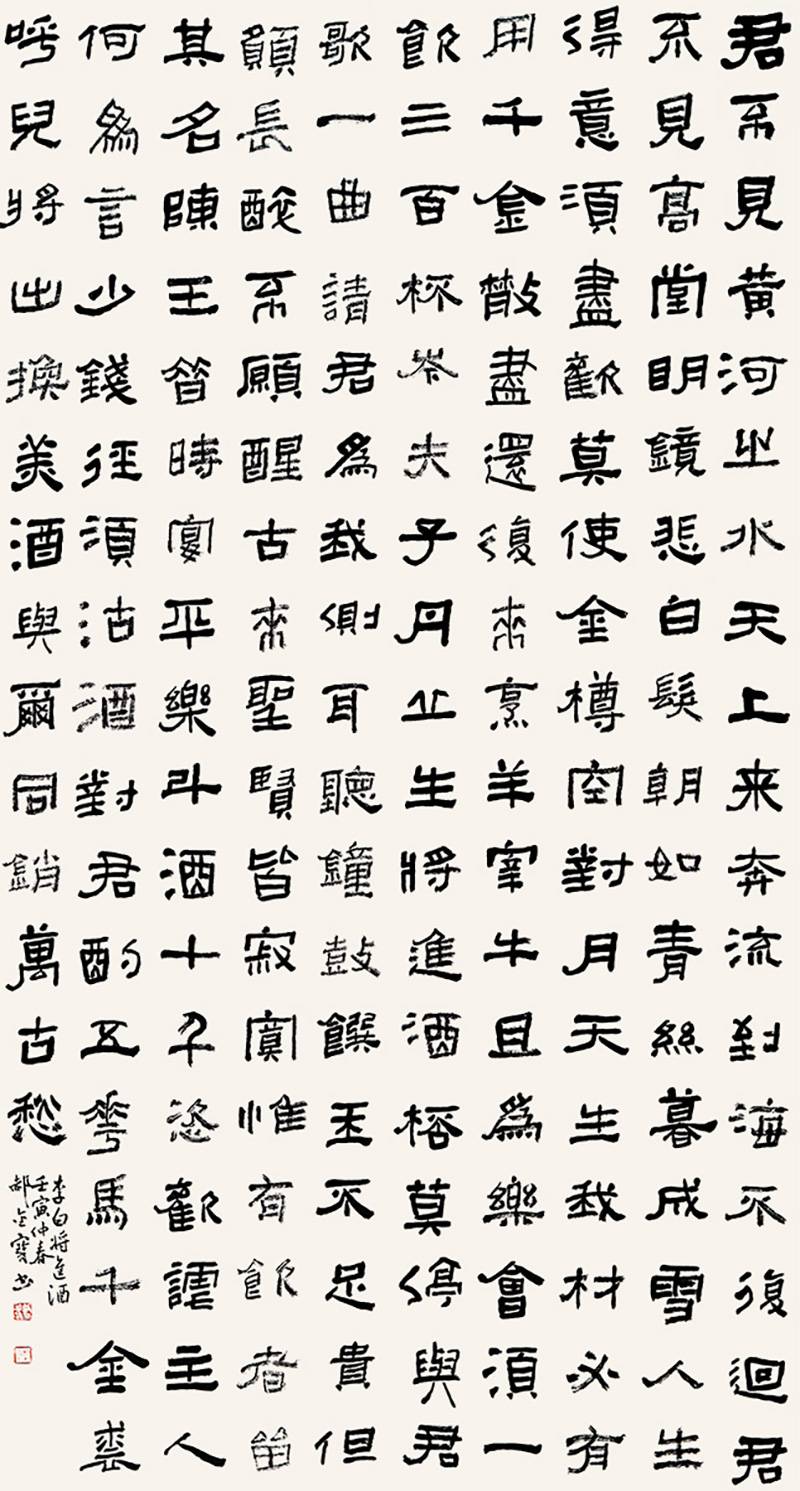 君不見黃河之水天上来奔流到海不復迴君
不見高堂明鏡悲白髮朝如青絲暮成雪人生
得意須盡歡莫使金樽空對月天生我材必有
用千金散盡還復來烹羊宰牛且爲樂會須一
飲三百杯岑夫子丹丘生將進酒桮莫停與君
歌一曲請君爲我側耳聽鐘鼓饌玉不足貴但
願長醉不願醒古來聖賢皆寂寞惟有飲者留
其名陳王昔時宴平樂斗酒十千恣歡謔主人
何爲言少錢徑須沽酒對君酌五花馬千金裘
呼兒將出換美酒與爾同銷萬古愁
李白将進酒
壬寅仲春